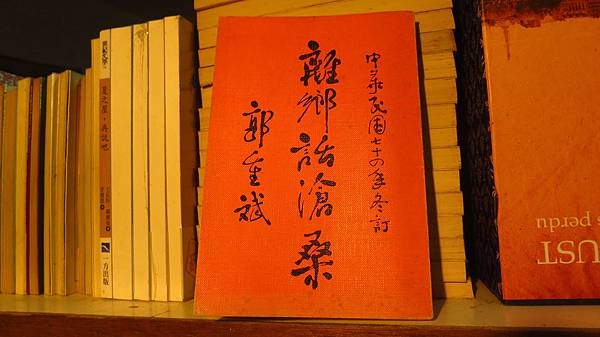 中華民國七十四年冬訂
離鄉話滄桑
郭重斌
一方出版
UST
s perdu